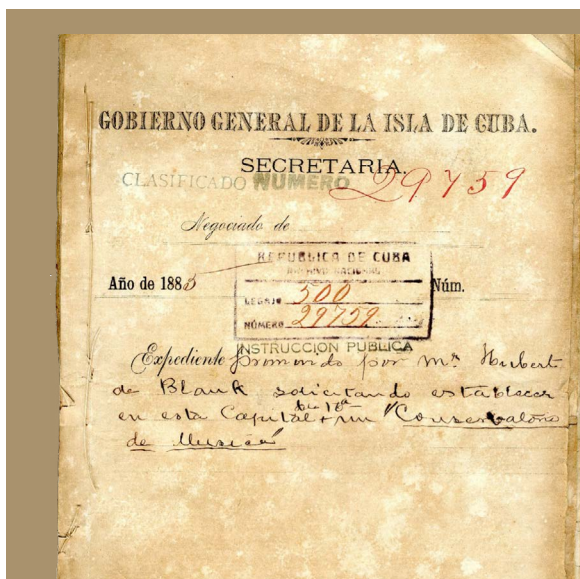 GOBIERNO GENERAL DE LA ISLA DE CUBA.
SECRETARIA.
CLASIFICADO NUMERO 29759
Negociado de
REPUBLICA DE CUBA
ARCHIVO NACIONAL
Año de 1885
Núm.
LEGAJO 500
NÚMERO 29759
INSTRUCCION PUBLICA
Expediente promovido por Mr. Hubert
de Blank solicitando establecer
en esta Capital un "Conservatorio
de Musica"